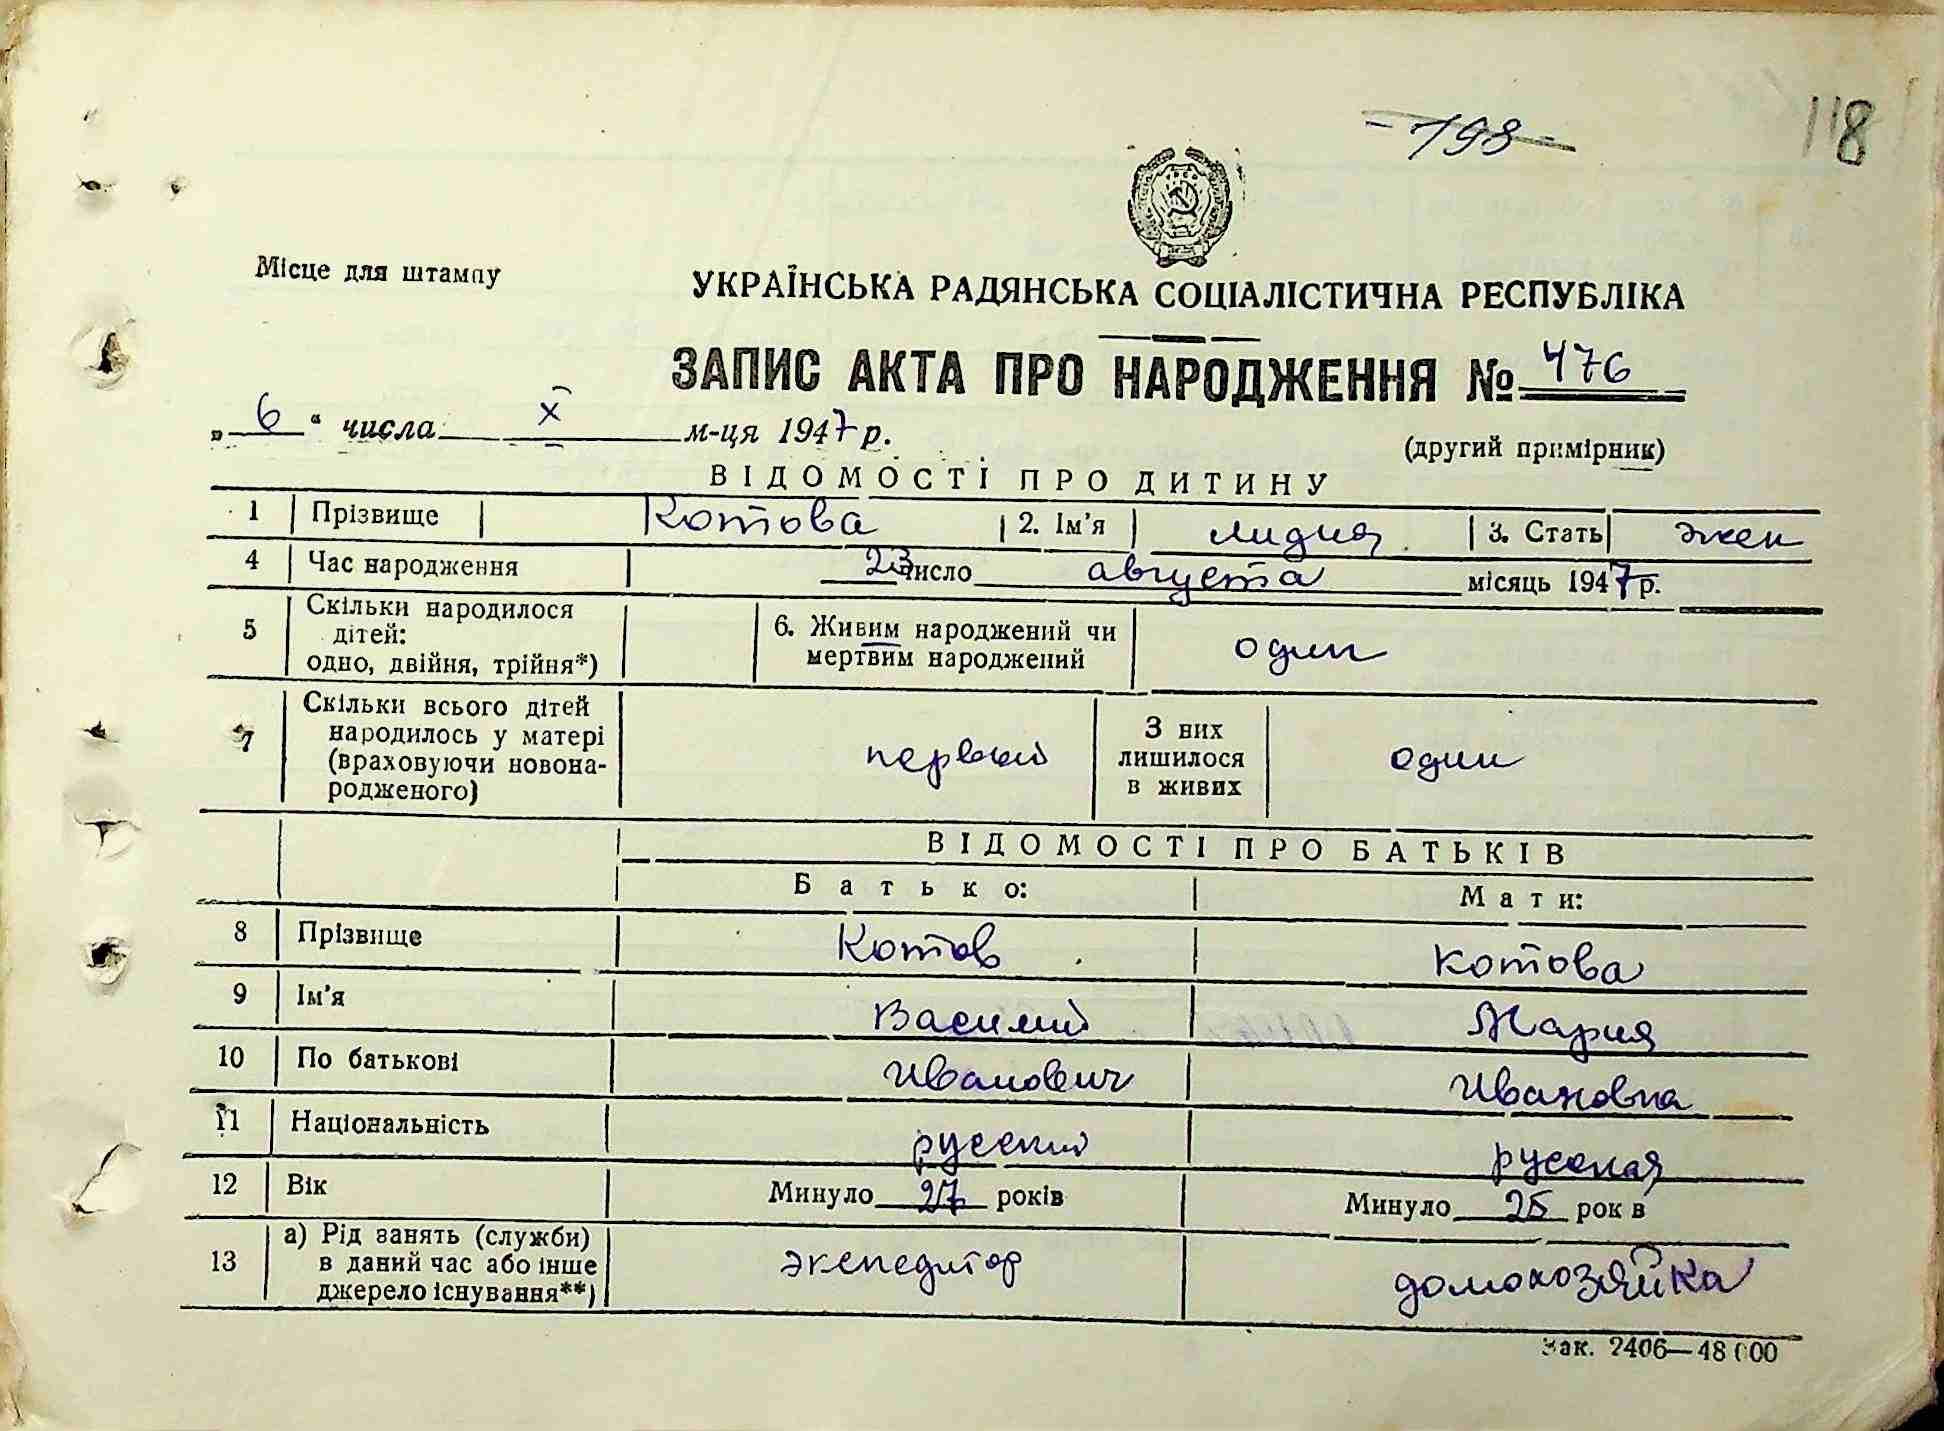 - 198 -
118
Місце для штампу
УКРАЇНСЬКА РАДЯНСЬКА СОЦІАЛІСТИЧНА РЕСПУБЛІКА
ЗАПИС АКТА ПРО НАРОДЖЕННЯ № 476
„ 6 “ числа X м-ця 1947 р.
(другий примірник)
ВІДОМОСТІ ПРО ДИТИНУ
1 Прізвище Котова 2. Ім'я Лидия 3. Стать жен
4 Час народження 23 число августа місяць 1947 р.
5 Скільки народилося дітей: одно, двійня, трійня*) 6. Живим народжений чи мертвим народжений один
7 Скільки всього дітей народилось у матері (враховуючи новона-родженого) первый З них лишилося в живих один
ВІДОМОСТІ ПРО БАТЬКІВ
Батько: Мати:
8 Прізвище Котов Котова
9 Ім'я Василий Мария
10 По батькові Иванович Ивановна
11 Національність русский русская
12 Вік Минуло 27 років Минуло 25 рок в
13 а) Рід занять (служби) в даний час або інше джерело існування**) экспедитор домохозяйка
Зак. 2406—48 000